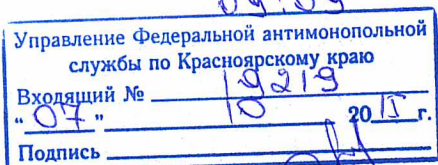 09:09
Управление Федеральной антимонопольной
службы по Красноярскому краю
Входящий № 19219
"07" 10 2015 г.
Подпись